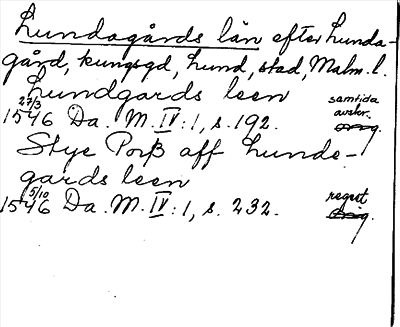 Lundagårds län efter Lunda-
gård, kungsgd, Lund, stad, Malm. l.
Lundgards leen samtida avskr.
27/3 1546 Da. M. IV:1, s. 192. orig.
Stye Porß aff Lunde-
gards leen
5/10 1546 Da. M. IV:1, s. 232. regest orig.